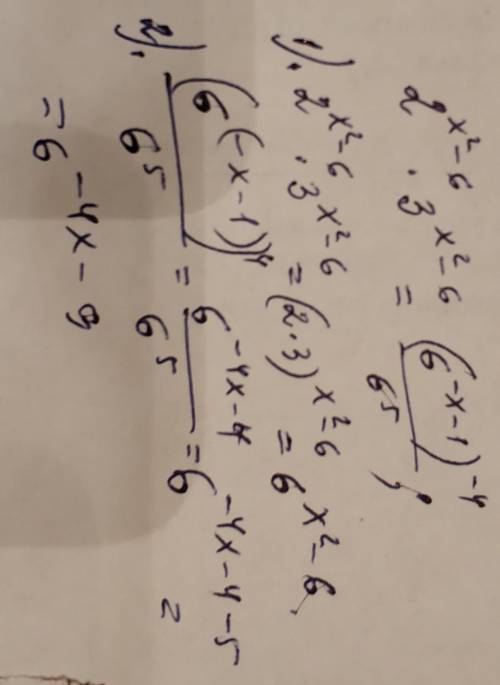 2^{x²-6} · 3^{x²-6} = (6^{-x-1})^{-4} / 6^5 ;
1). 2^{x²-6} · 3^{x²-6} = (2·3)^{x²-6} = 6^{x²-6}.
2). (6^{(-x-1)})^4 / 6^5 = 6^{-4x-4} / 6^5 = 6^{-4x-4-5} =
= 6^{-4x-9}